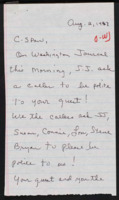 Aug. 2, 1997
C-Span,
On Washington Journal
this morning, J.J. ask
a caller to be polite
to your guest!
We the callers ask JJ,
Susan, Connie, Lou, Steve
Bryan to please be
polite to us!
Your guest and you the